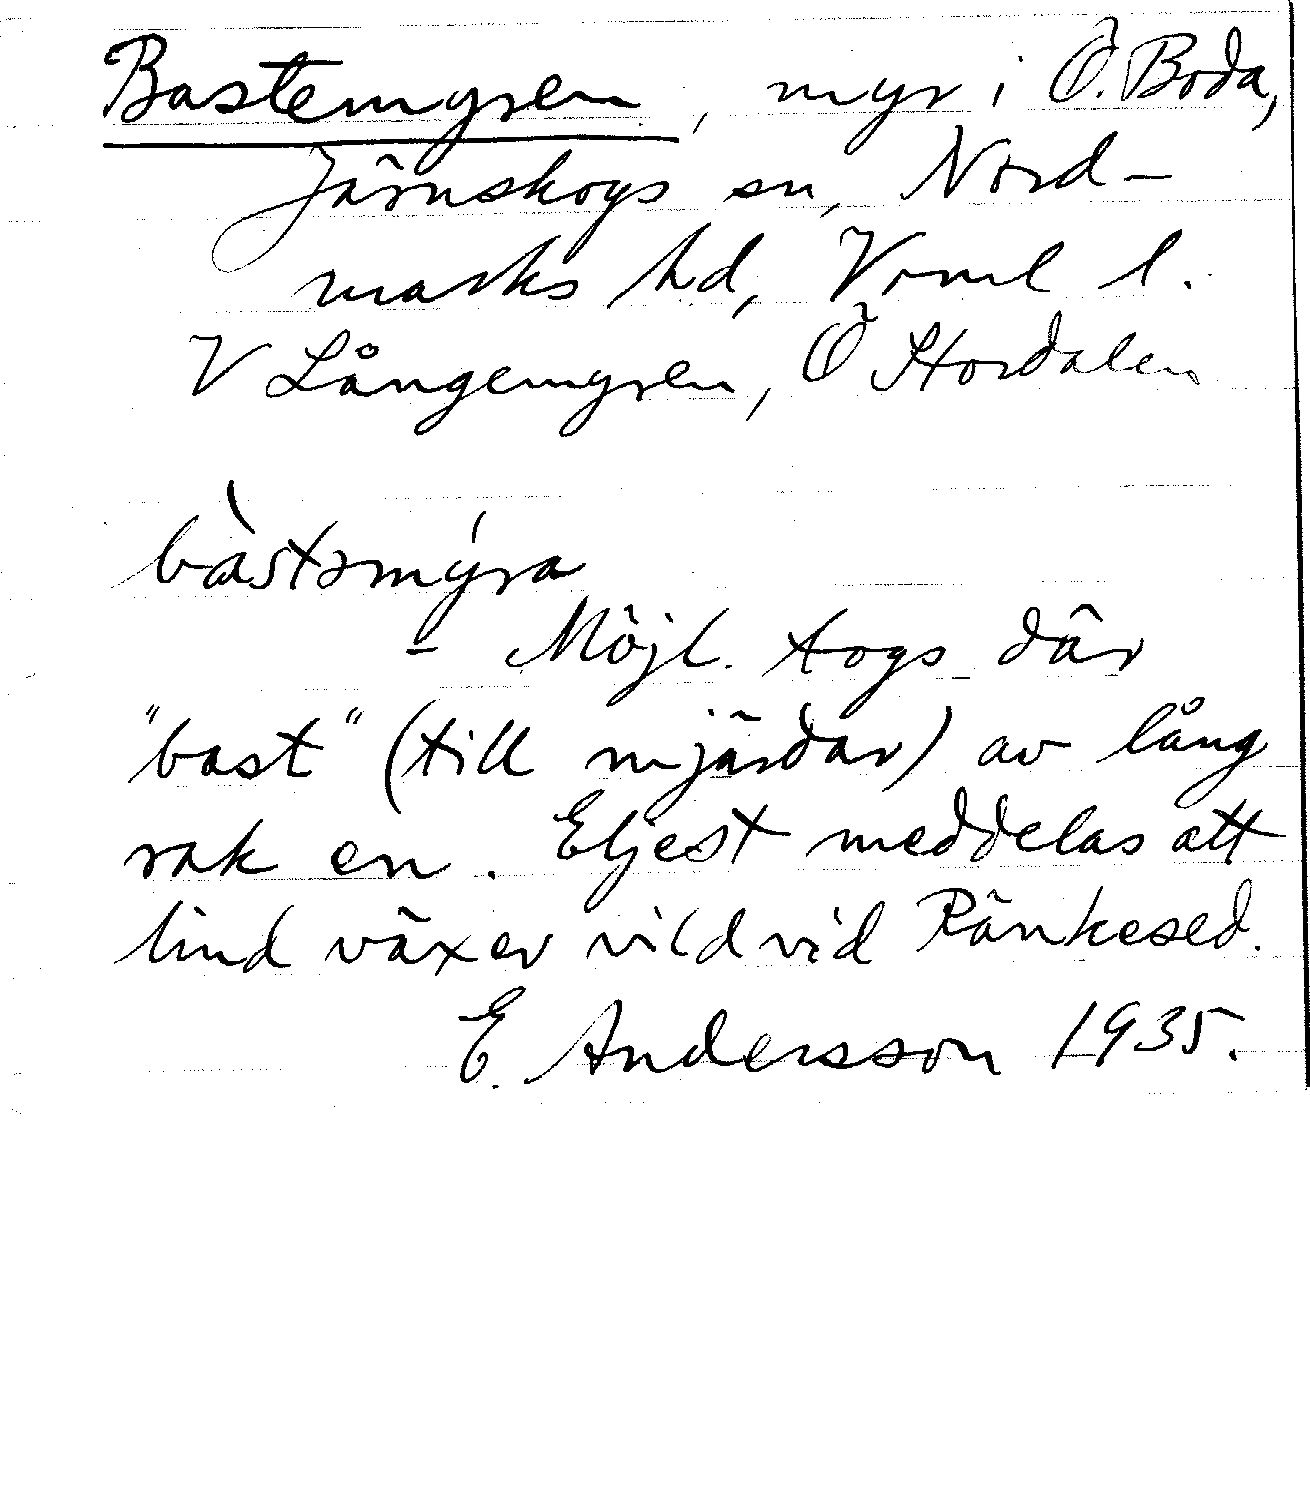 Bastemyren, myr i Ö. Boda,
Järnskogs sn, Nord-
marks hd, Vrml l.
V Långemyren, Ö Stordalen
bàstəmýra
- Möjl. togs där
"bast" (till mjärdar) av lång
rak en. Eljest meddelas att
lind växer vild vid Ränkesed.
E. Andersson 1935.